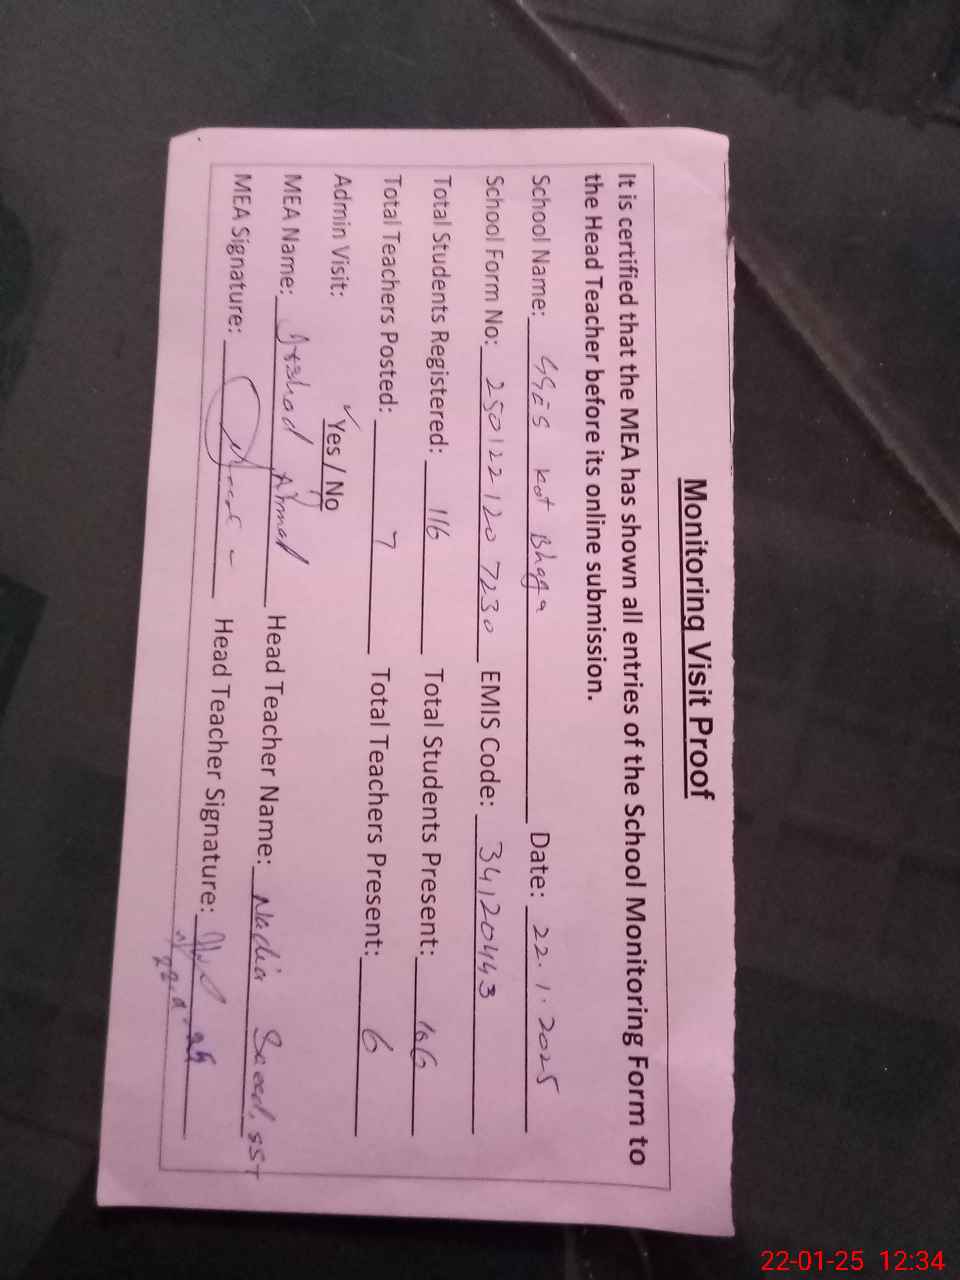 Monitoring Visit Proof
It is certified that the MEA has shown all entries of the School Monitoring Form to
the Head Teacher before its online submission.
School Name: GGES Kot Bhaga Date: 22.1.2025
School Form No: 250122120 7230 EMIS Code: 34120443
Total Students Registered: 116 Total Students Present: 106
Total Teachers Posted: 7 Total Teachers Present: 6
Admin Visit: ✓Yes / No
MEA Name: Irshad Ahmad Head Teacher Name: Nadia Saeed, SST
MEA Signature: Head Teacher Signature:
22-01-25 12:34